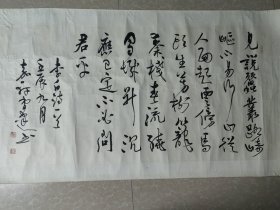 見說蠶叢路崎
嶇不易行山從
人面起雲傍馬
頭生芳樹籠
秦棧春流繞
蜀城升沉
應已定不必問
君平
李白詩一首
九月
書